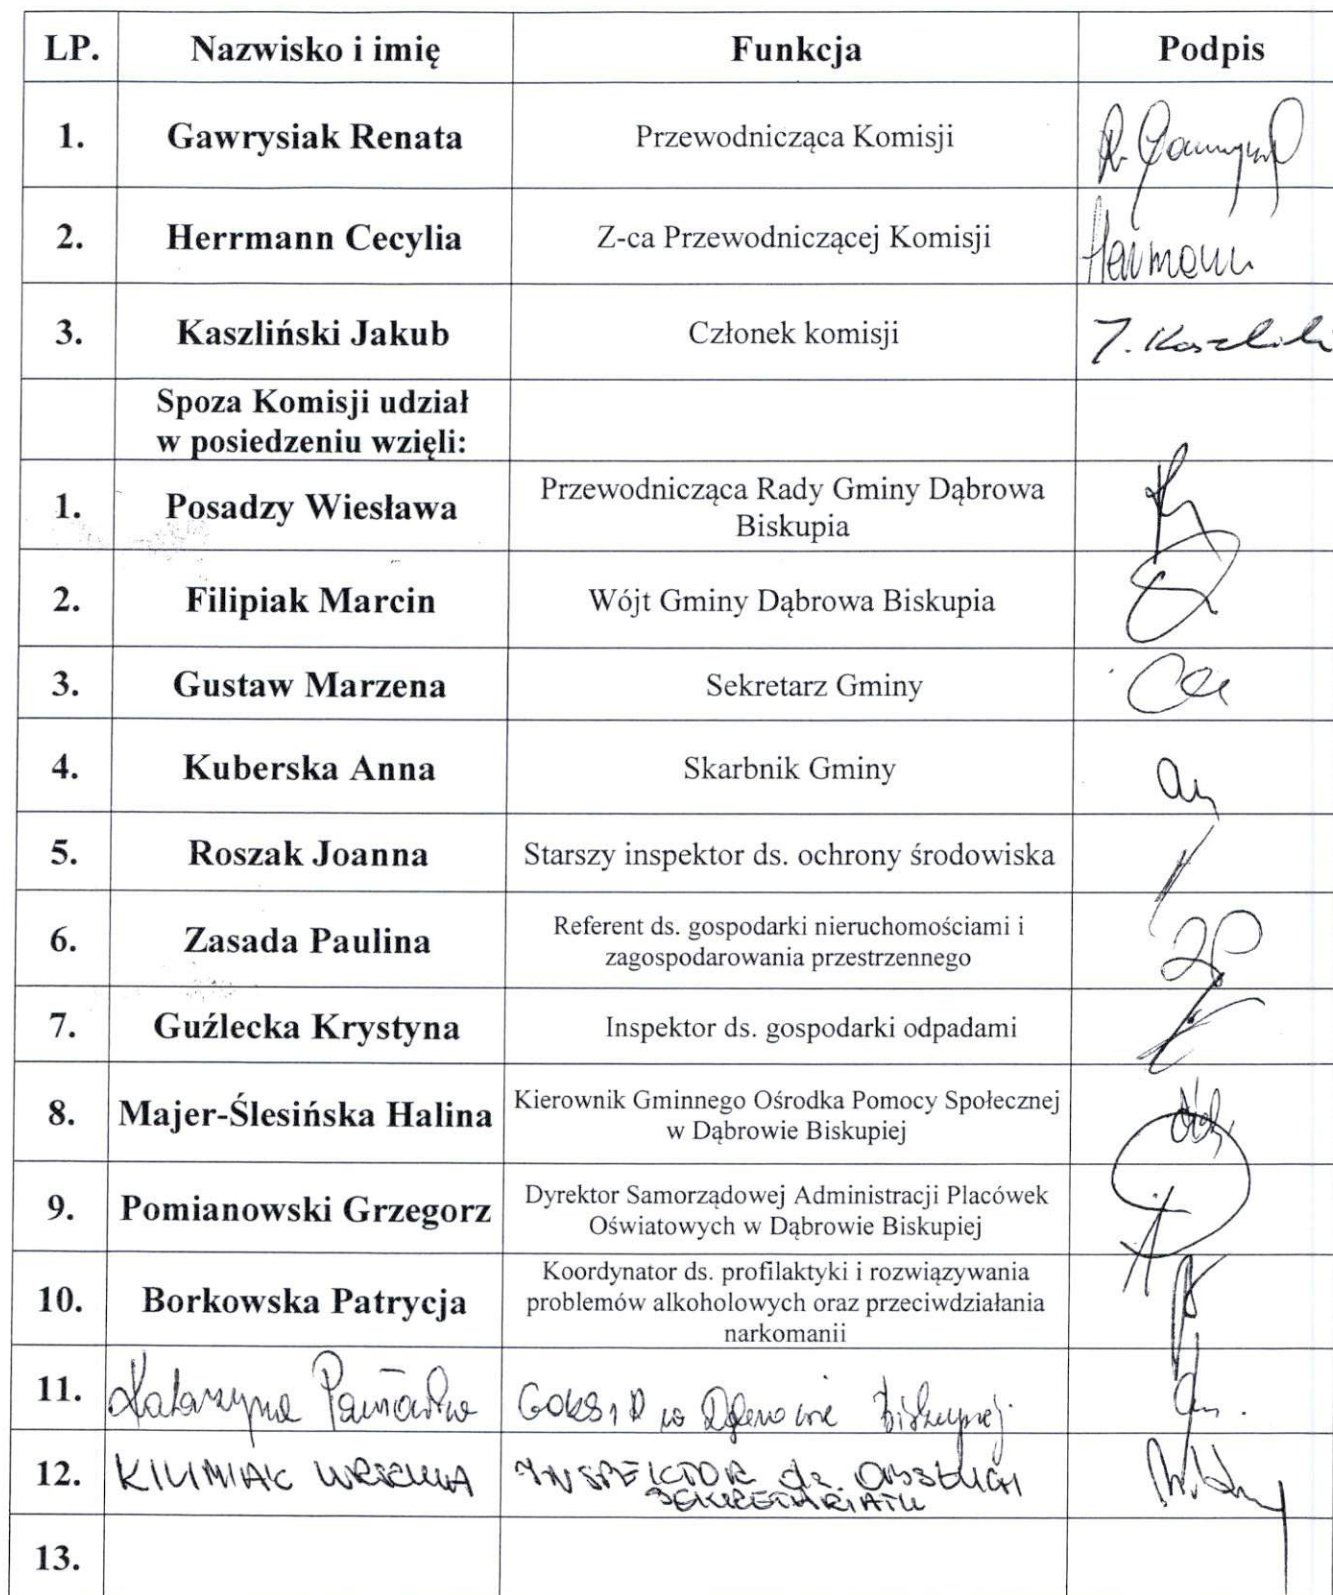 LP. Nazwisko i imię Funkcja Podpis
1. Gawrysiak Renata Przewodnicząca Komisji
2. Herrmann Cecylia Z-ca Przewodniczącej Komisji Herrmann
3. Kaszliński Jakub Członek komisji J. Kaszliński
Spoza Komisji udział
w posiedzeniu wzięli:
1. Posadzy Wiesława Przewodnicząca Rady Gminy Dąbrowa
Biskupia
2. Filipiak Marcin Wójt Gminy Dąbrowa Biskupia
3. Gustaw Marzena Sekretarz Gminy
4. Kuberska Anna Skarbnik Gminy
5. Roszak Joanna Starszy inspektor ds. ochrony środowiska
6. Zasada Paulina Referent ds. gospodarki nieruchomościami i
zagospodarowania przestrzennego
7. Guźlecka Krystyna Inspektor ds. gospodarki odpadami
8. Majer-Ślesińska Halina Kierownik Gminnego Ośrodka Pomocy Społecznej
w Dąbrowie Biskupiej
9. Pomianowski Grzegorz Dyrektor Samorządowej Administracji Placówek
Oświatowych w Dąbrowie Biskupiej
10. Borkowska Patrycja Koordynator ds. profilaktyki i rozwiązywania
problemów alkoholowych oraz przeciwdziałania
narkomanii
11. Katarzyna w Dąbrowie Biskupiej
12. KILIMIAK URSZULA INSPEKTOR ds. OBSŁUGI
SEKRETARIATU
13.